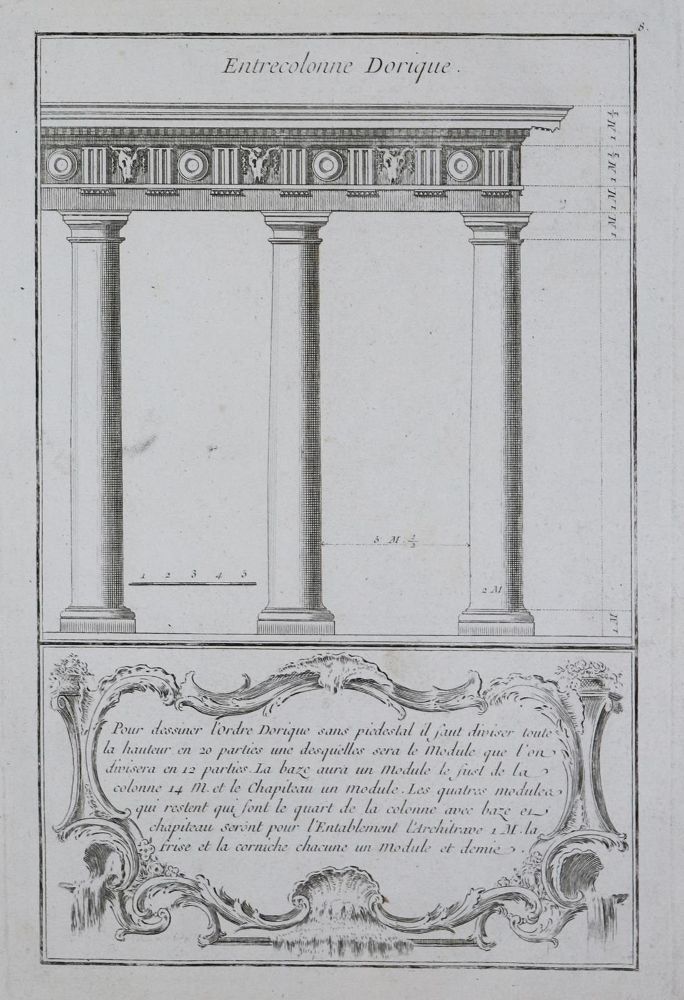 8.
Entrecolonne Dorique.
1 M ½
1 M ½
1 M
1 M
5 M ½
1 2 3 4 5
2 M
1 M
Pour dessiner l'ordre Dorique sans piedestal il faut diviser toute
la hauteur en 20 parties une desquelles sera le Module que l'on
divisera en 12 parties. La baze aura un Module le fust de la
colonne 14 M. et le Chapiteau un module. Les quatres modules
qui restent qui font le quart de la colonne avec baze et
chapiteau seront pour l'Entablement l'Architrave 1 M. la
frise et la corniche chacune un Module et demie.